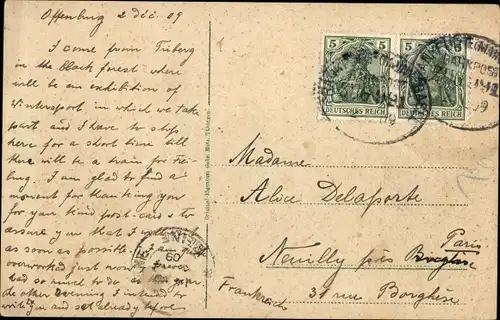 Offenburg 2 déc. 09
I come from Triberg
in the black forest where
will be an exhibition of
Wintersport in which we take
part and I have to stop
here for a short time till
there will be a train for Frei-
burg. I am glad to find a
moment for thanking you
for your kind post-cards &to
assure you that I will
as soon as possible. I am
overworked just now, I never
had so much to do as
the other evening I intended to
write you and set already before
Original-Eigentum Gebr. Metz, Tübingen
5 5
5 5
DEUTSCHES REICH
DEUTSCHES REICH
Madame
Alice Delaporte
Paris
Neuilly près
31 rue Borghèse
Frankreich